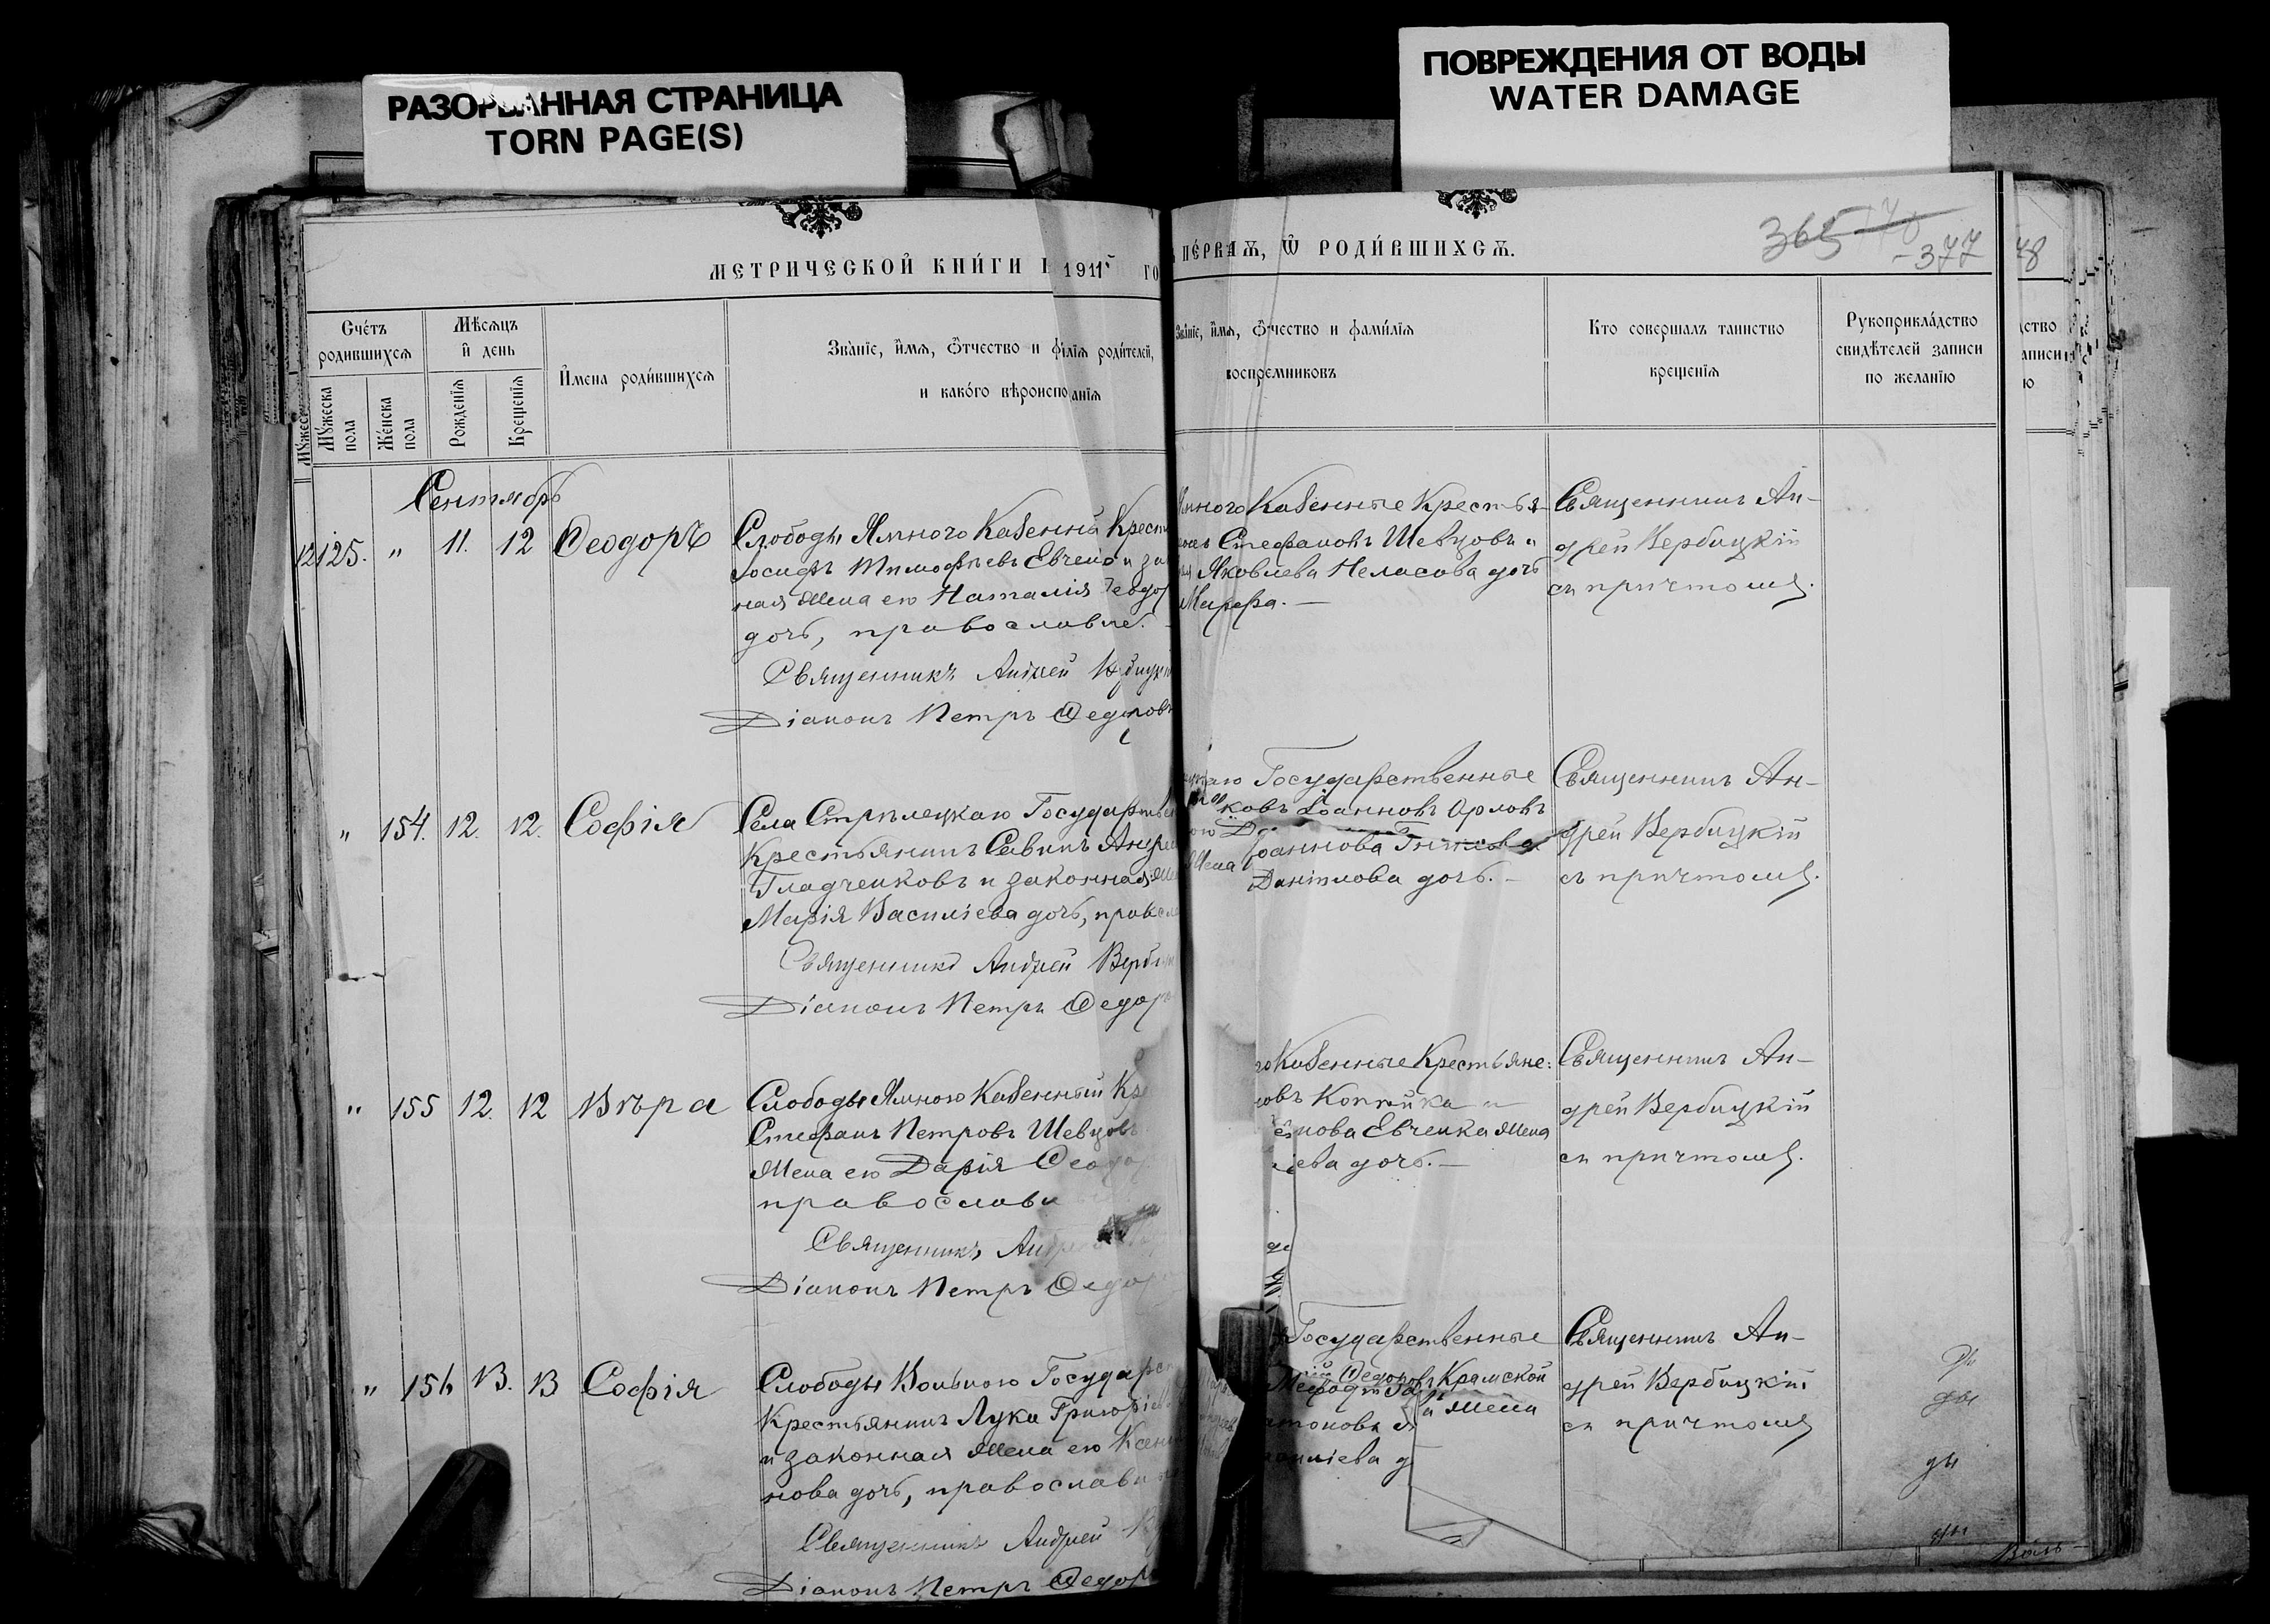 РАЗОРВАННАЯ СТРАНИЦА
TORN PAGE(S)
ПОВРЕЖДЕНИЯ ОТ ВОДЫ
WATER DAMAGE
МЕТРИЧЕСКОЙ КНИГИ 1911 ГО
ПЕРВАѦ, Ѿ РОДИВШИХСѦ.
365
377
78
Счетъ родившихсѧ
Мѣсѧцъ и день
Имена родившихсѧ
Званіе, имѧ, ѿтчество и филіѧ родителей,
и какого вѣроиспо аніѧ
Мужеска пола
Женска пола
Рожденіѧ
Крещеніѧ
Званіе, имѧ, ѿтчество и фамиліѧ
воспремниковъ
Кто совершалъ таинство
крещеніѧ
Рукоприкладство
свидѣтелей записи
по желанію
Сентябрь
125. " 11. 12 Ѳеодоръ
Слободы Ямного Казенный Крест
Іосифъ Тимофѣевъ Евченко и за
ная жена его Наталія Ѳеодор
дочь, православн.
Священникъ Андрей
Діаконъ Петръ Ѳедоровъ
Казенные Крестья-
Стефановъ Шевцовъ и
Яковлева дочь
Марфа. —
Священникъ Ан-
дрей Вербицкій
съ причтомъ.
" 154. 12. 12. Софія
Села Стрѣлецкаго Государствен
Крестьянинъ Савинъ Андре
Гладченковъ и законная же
Марія Василіева дочь, правосла
Священникъ Андрей Верби
Діаконъ Петръ Ѳедоро
Государственные
ковъ Іоанновъ Орловъ
Іоаннова
жена
Даніилова дочь. —
Священникъ Ан-
дрей Вербицкій
съ причтомъ.
" 155 12. 12 Вѣра
Слободы Ямного Казенный Кр
Стефанъ Петровъ Шевцовъ
жена его Дарія Ѳеодор
православн
Священникъ Андрей
Діаконъ Петръ Ѳедоро
Казенные Крестьяне:
овъ Копѣйка и
нова Евченка жена
іева дочь. —
Священникъ Ан-
дрей Вербицкій
съ причтомъ.
" 156 13. 13 Софія
Слободы Вольного Государст
Крестьянинъ Лука Григоріев
и законная жена его Ксен
нова дочь, православн
Священникъ Андрей
Діаконъ Петръ Ѳедоро
Государственные
Ѳедоровъ Крамской
жена
Священникъ Ан-
дрей Вербицкій
съ причтомъ